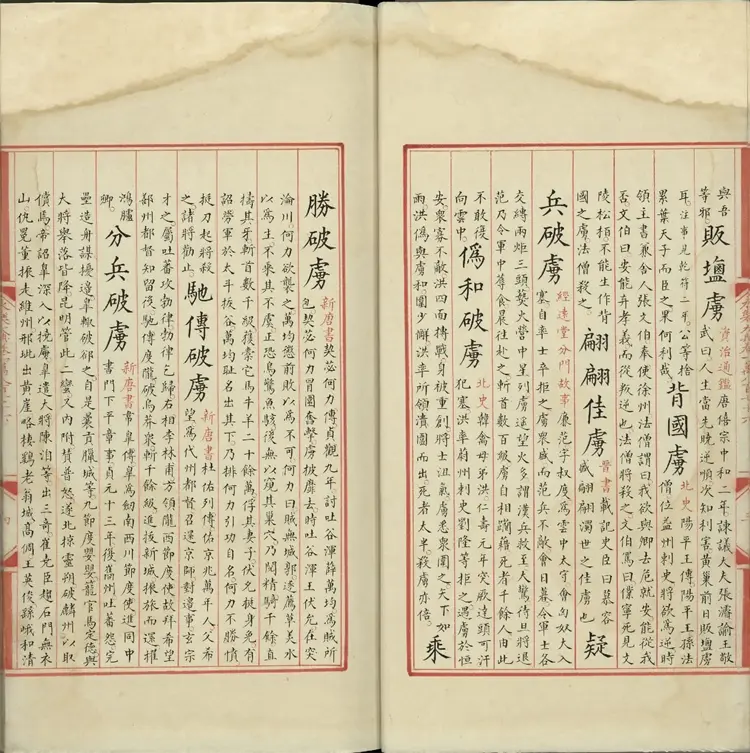 與吾
等邪。
販鹽虜
資治通鑑唐僖宗中和二年諫議大夫張濬諭王敬
武曰人生當先曉逆順次知利害黃巢前日販鹽虜
耳。注事見乾符二年。公等捨
累葉天子而臣之果何利哉
背國虜
北史陽平王傳陽平王孫法
僧位益州刺史將欲為逆時
領主書兼舍人張文伯奉使徐州法僧謂曰我欲與卿去危就安能從我
否文伯曰安能弃孝義而從叛逆也法僧將殺之文伯罵曰僕寧死見文
陵松栢不能生作背
國之虜法僧殺之。
翩翩佳虜
晉書載記史臣曰慕容
翩翩濁世之佳虜也
疑
兵破虜
經遠堂分門故事廉范字叔度為雲中太守會匈奴大入
塞自率士卒拒之虜衆盛而范兵不敵會日暮令軍士各
交縛兩炬三頭爇火營中星列虜遙望火多謂漢兵救至大驚待旦將退
范乃令軍中蓐食晨往赴之斬首數百級虜自相藉死者千餘人由此
不敢復
向雲中。
偽和破虜
北史韓禽母弟洪仁壽元年突厥達頭可汗
犯塞洪率蔚州刺史劉隆等拒之遇虜於恒
安衆寡不敵洪四面搏戰身被重創將士沮氣虜悉衆圍之矢下如
雨洪偽與虜和圍少懈洪率所領潰圍而出死者大半殺虜亦倍。
乘
勝破虜
新唐書契苾何力傳貞觀九年討吐谷渾薛萬均為賊所
包契苾何力冒圍奮擊虜披靡去時吐谷渾王伏允在突
淪川何力欲襲之萬均懲前敗以為不可何力曰賊無城郭逐薦草美水
以為主不乘其不虞正恐鳥驚魚駭後無以窺其巢穴乃閱精騎千餘直
擣其牙斬首數千級獲橐它馬牛羊二十餘萬俘其妻子伏允挺身免有
詔勞軍於大斗拔谷萬均恥名出其下乃排何力引功自名何力不勝憤
挺刀起將殺
之諸將勸止。
馳傳破虜
新唐書杜佑列傳佑京兆萬年人父希
望為代州都督召還京師對邊事玄宗
才之屬吐蕃攻勃律勃律乞歸右相李林甫方領隴西節度使故拜希望
鄯州都督知留後馳傳度隴破烏莽衆斬千餘級進拔新城振旅而還擢
鴻臚
卿
分兵破虜
新唐書韋臯傳臯為劒南西川節度使進同中
書門下平章事貞元十三年復巂州吐蕃怨完
壘造舟謀擾邊臯輒破卻之自是曩貢臘城等九節度嬰嬰籠官馬定德與
大將舉落皆降昆明管此二蠻又內附贊普怒遂北掠靈朔破麟州以取
償馬帝詔臯深入以撓虜臯遣大將陳洎等出三奇崔堯臣趨石門無衣
山仇冕董振走維州邢玼出黃崖略棲鷄老翁城高倜王英俊孫峨和清